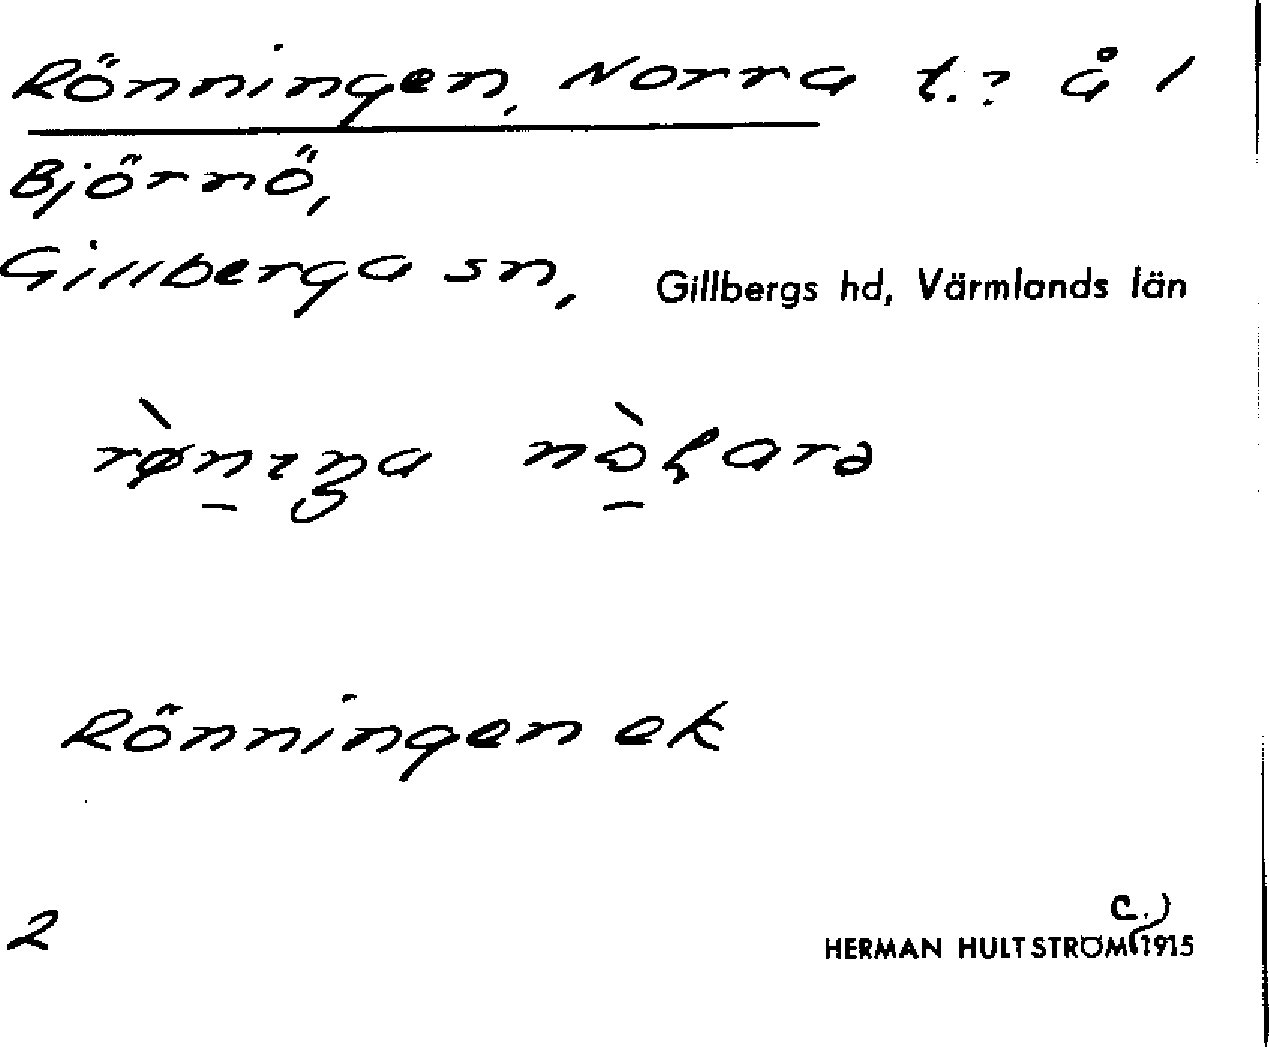 Rönningen, Norra t.? å 1
Björnö,
Gillberga sn, Gillbergs hd, Värmlands län
Rönningen ek
2
c.)
HERMAN HULTSTRÖM (1915